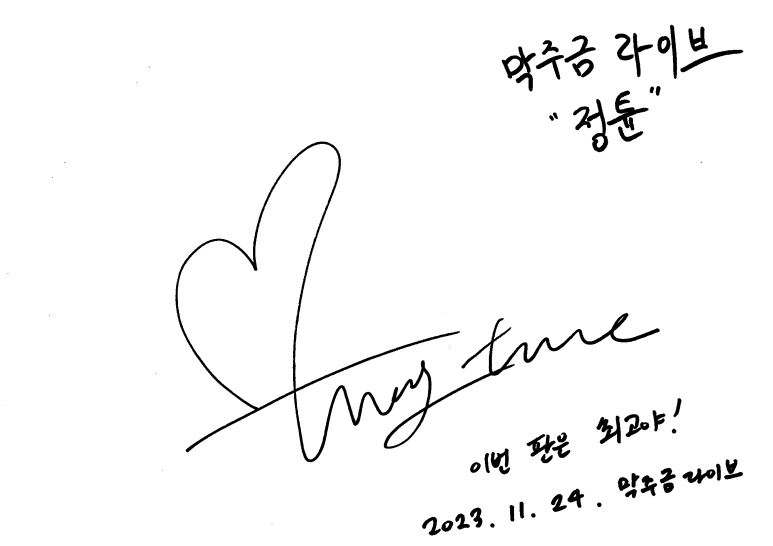 막주금 라이브
"정튠"
my tune
이번 판은 최고야!
2023. 11. 24. 막주금 라이브